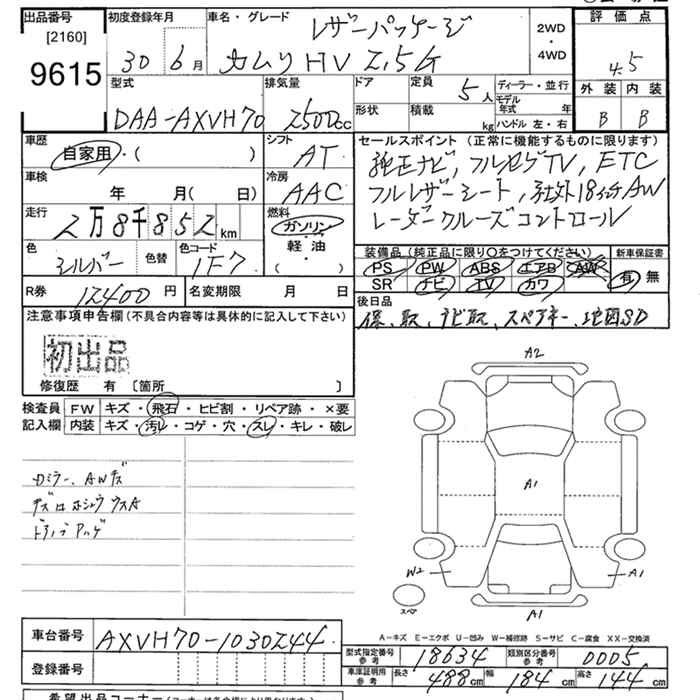 出品番号 初度登録年月 車名・グレード レザーパッケージ 2WD・4WD 評価点
[2160]
9615 30 6月 カムリHV 2.5G 4.5
型式 排気量 ドア 定員 5人 ディーラー・並行 外装 内装
DAA-AXVH70 2500cc 形状 積載 kg モデル年式 年 ハンドル 左・右 B B
車歴 自家用・( ) シフト AT セールスポイント (正常に機能するものに限ります)
純正ナビ, フルセグTV, ETC
車検 年 月( 日) 冷房 AAC フルレザーシート, 社外18インチAW
走行 2万8千852km 燃料 ガソリン・軽油・( ) レーダークルーズコントロール
色 シルバー 色替 色コード 1F7 装備品 (純正品に限り○をつけてください) 新車保証書
PS PW ABS エアB AW 有・無
SR ナビ TV カワ
R券 12400円 名変期限 月 日 後日品
保、取、ナビ取、スペアキー、地図SD
注意事項申告欄 (不具合内容等は具体的に記入して下さい)
初出品
修復歴 有 〔箇所 〕
検査員 FW キズ・飛石・ヒビ割・リペア跡・×要
記入欄 内装 キズ・汚レ・コゲ・穴・スレ・キレ・破レ
A2
A1
Dミラー、AWキズ
W2 A1
スペア A1
A-キズ E-エクボ U-凹み W-補修跡 S-サビ C-腐食 XX-交換済
車台番号 AXVH70-1030244
型式指定番号 参考 18634 類別区分番号 参考 0005
登録番号 車庫証明用 参考 長さ 488cm 幅 184cm 高さ 144cm
希望出品コーナー